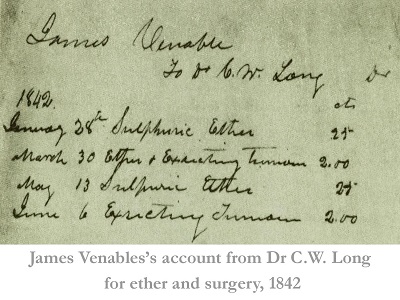 James Venable
To Dr C.W. Long Dr
1842 cts
January 28th Sulphuric Ether 25
March 30 Ether & Exsecting Tumour 2.00
May 13 Sulphuric Ether 25
June 6 Exsecting Tumour 2.00
James Venables's account from Dr C.W. Long
for ether and surgery, 1842